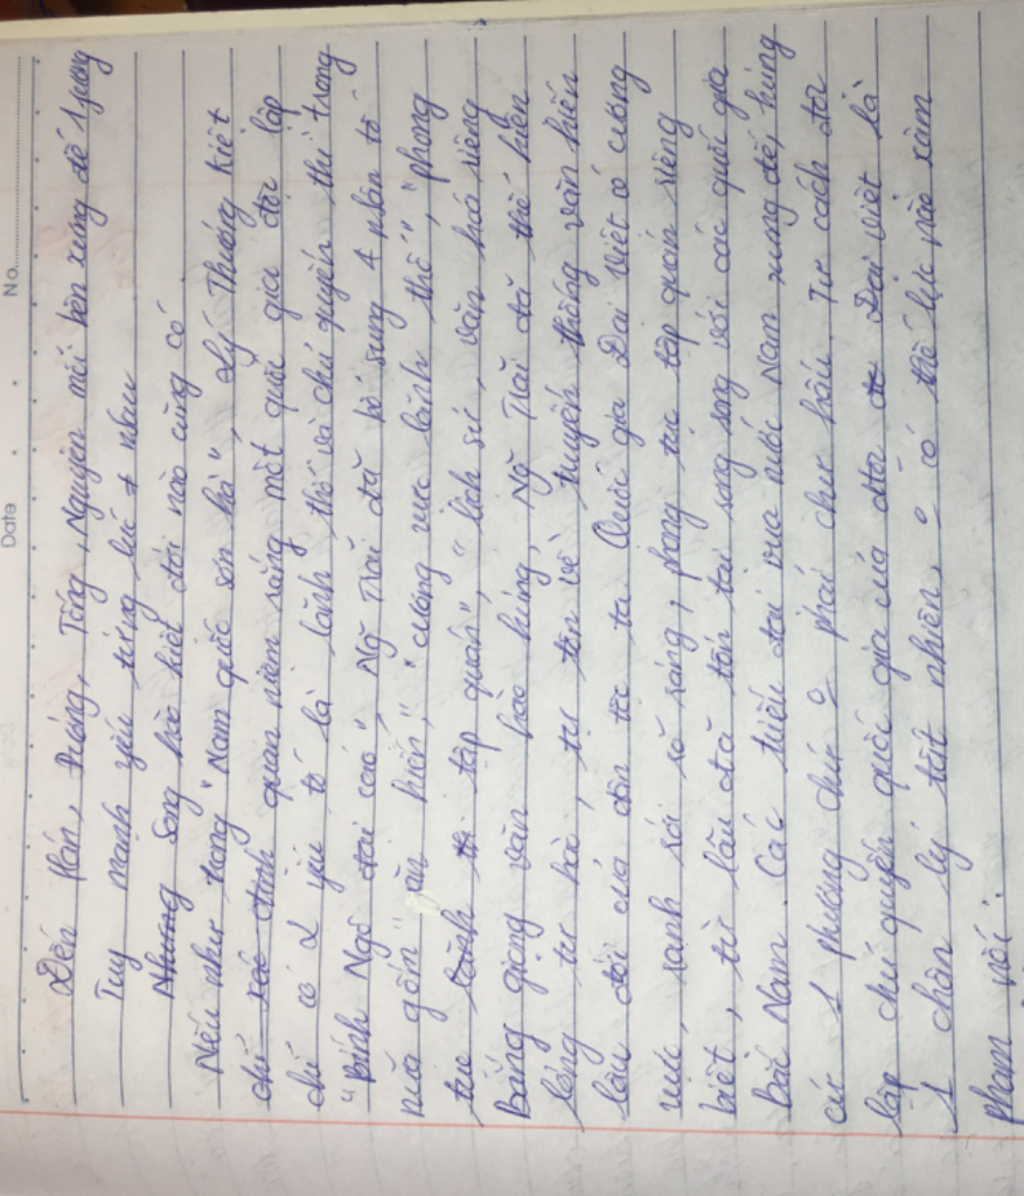 No.
Date
Đến Hán, Đường, Tống, Nguyên mỗi bên xưng đế 1 phương
Tuy mạnh yếu từng lúc ≠ nhau
Nhưng Song hào kiệt đời nào cũng có
Nếu như trong "Nam quốc sơn hà", Lý Thường Kiệt
chỉ xác định quan niệm rằng một quốc gia độc lập
chỉ có 2 yếu tố là lãnh thổ và chủ quyền thì trong
"Bình Ngô đại cáo", Ng Trãi đã bổ sung 4 nhân tố
nữa gồm "văn hiến", "cương vực lãnh thổ", "phong
tục lãnh th tập quán", "lịch sử, văn hoá riêng
Bằng giọng văn hào hùng, Ng Trãi đã thể hiện
lòng tự hào, tự tôn về truyền thống văn hiến
lâu đời của dân tộc ta. Quốc gia Đại Việt có cương
vực, ranh giới rõ ràng, phong tục tập quán riêng
biệt, từ lâu đã tồn tại song song với các quốc gia
Bắc Nam. Các triều đại vua nước Nam xưng đế, hùng
cứ 1 phương chứ o phải chư hầu. Tư cách độc
lập chủ quyền quốc gia của dân tộc Đại Việt là
1 chân lý tất nhiên, o có thế lực nào xâm
phạm nổi.